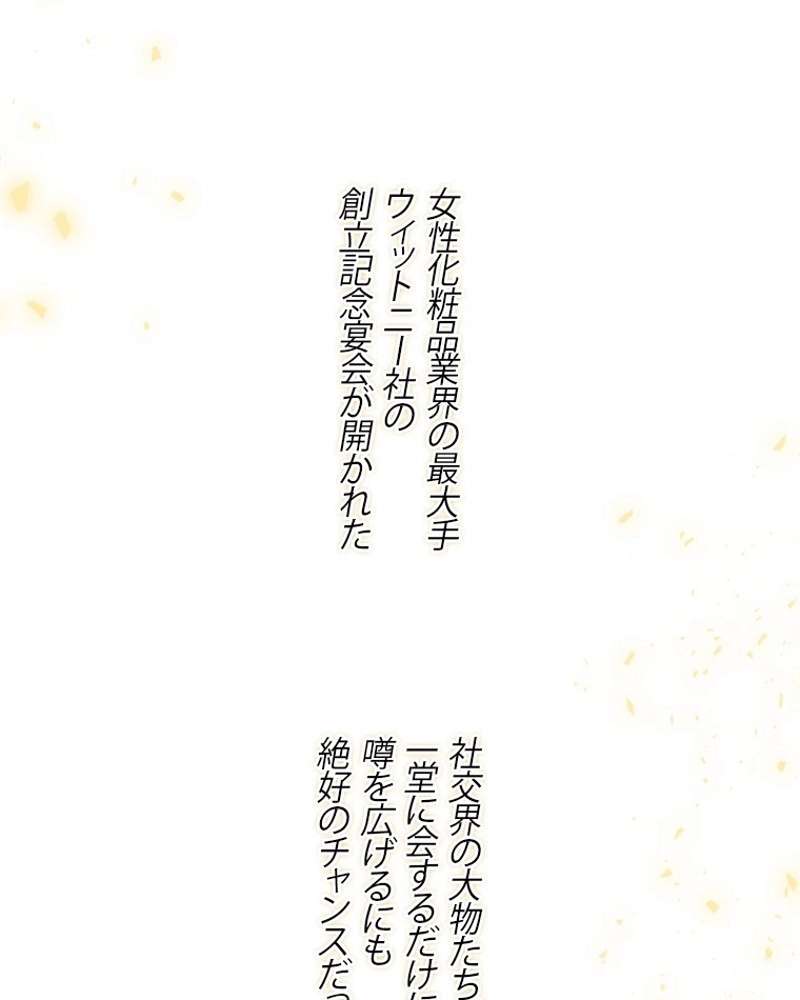 女性化粧品業界の最大手
ウィットニー社の
創立記念宴会が開かれた
社交界の大物たち
一堂に会するだけに
噂を広げるにも
絶好のチャンスだっ